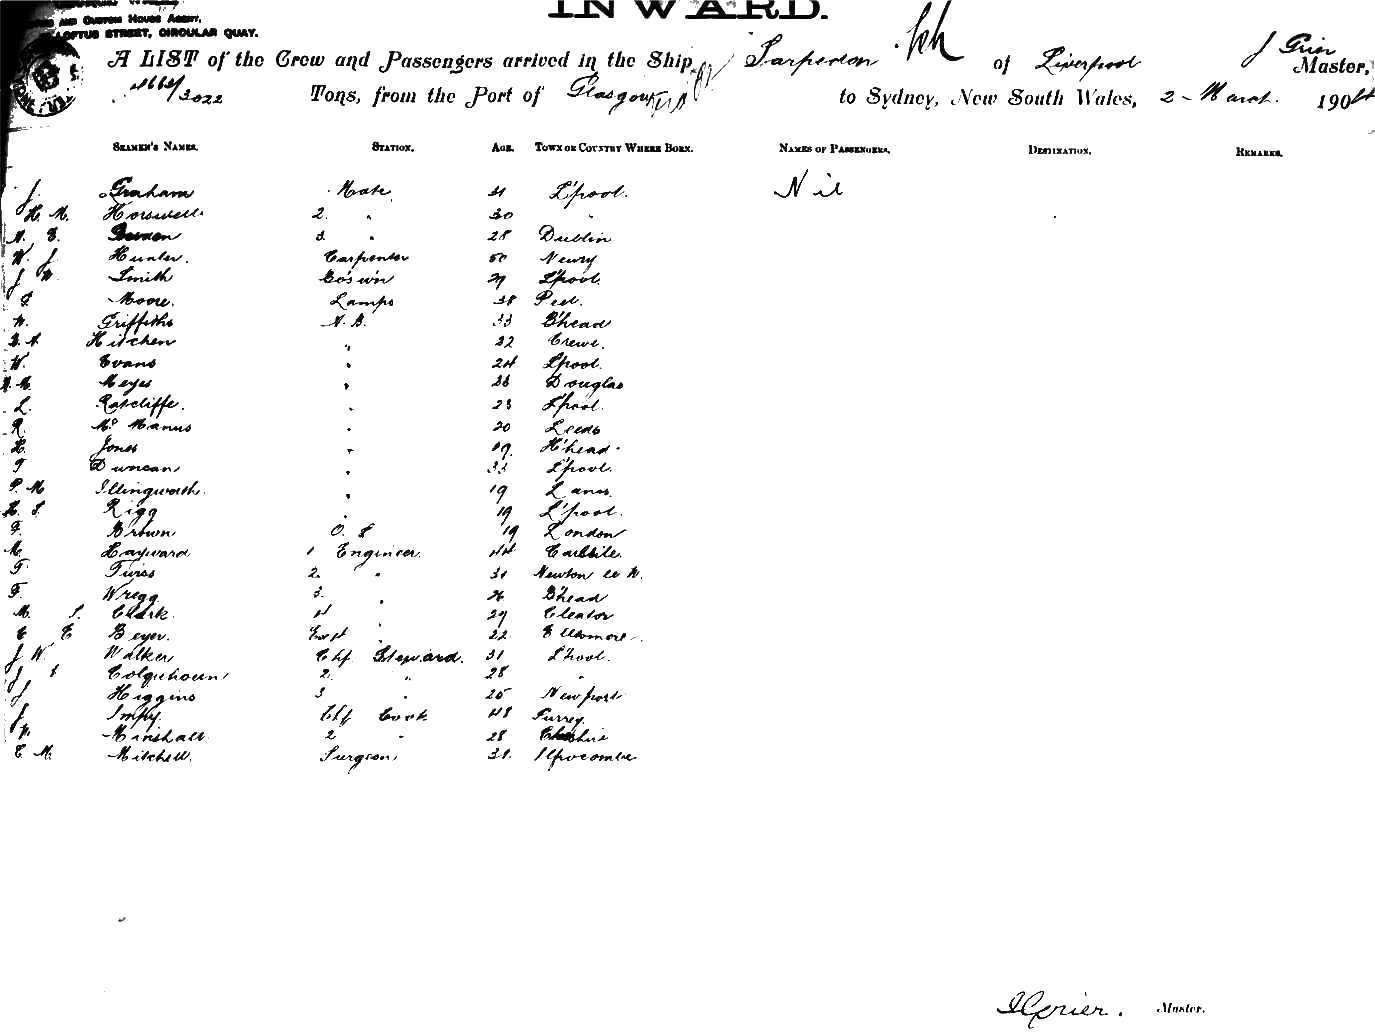 INWARD.
AND CUSTOM HOUSE AGENT,
LOFTUS STREET, CIRCULAR QUAY.
A LIST of the Crew and Passengers arrived in the Ship Sarpedon of Liverpool J Grier Master,
4664/3022 Tons, from the Port of Glasgow to Sydney, New South Wales, 2 - March. 1904
SEAMEN'S NAMES. STATION. AGE. TOWN OR COUNTRY WHERE BORN. NAMES OF PASSENGERS. DESTINATION. REMARKS.
J. Graham Mate 31 L'pool. Nil
H. M. Horswell 2. " 30 "
3. " 28 Dublin
W. J. Hunter. Carpenter 50 Newry
J W. Smith Bo's'w'n 29 L'pool.
Moore. Lamps 38 Peel.
W. Griffiths A.B. 33 B'head
Hitchen " 22 Crewe.
W. Evans " 24 L'pool.
Meyes " Douglas
L. Ratcliffe. " 23 L'pool.
R. McManus " 20 Leeds
H. Jones " 19. H'head.
T Duncan " 33 L'pool.
P. M Illingworth. " 19 Lancs.
H. S. Rigg " 19 L'pool.
F. Brown O. S 19 London
M. Hayward 1 Engineer. 44 Carlisle.
T. Twiss 2. " 31 Newton le W.
F. Wregg 3. " 26 B'head
M. S. Clark. 4 " 29 Cleator
E E Beyer. 22 Ellesmere.
J W. Walker Chf. Steward. 31 L'pool.
J Colquhoun 2. " 28 "
J Higgins 3 " 25 Newport
J Impy. Chf Cook 48 Surrey.
W. Minshall 2 " 28 Cheshire
E M. Mitchell. Surgeon 31. Ilfracombe
J Grier. Master.